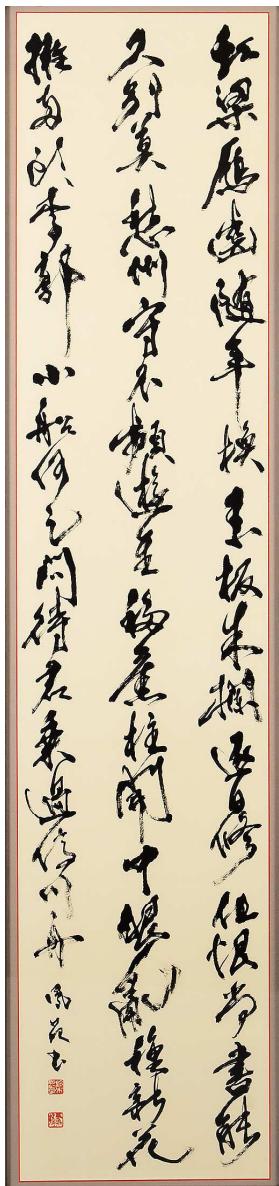 虹梁雁齒随年換素板朱欄逐日修但恨尚書能
久別莫愁州守不頻遊重移舊柱開中眼亂種新花
擁両頭李郭小船何足問待君乗過済川舟